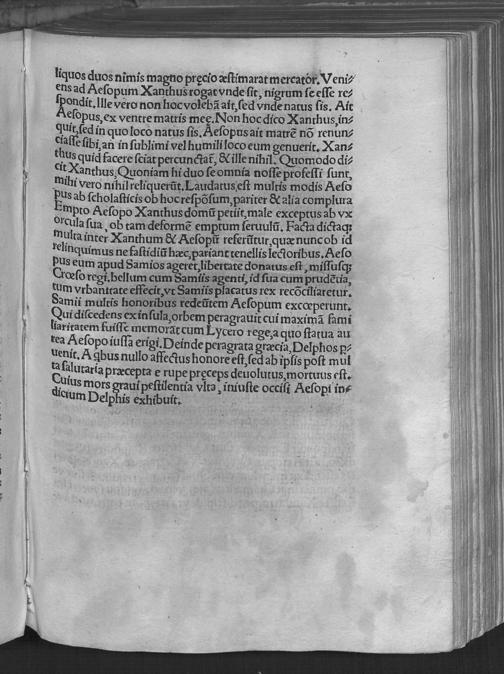 liquos duos nimis magno precio æstimarat mercator. Veni⸗
ens ad Aesopum Xanthus rogat vnde sit, nigrum se esse re⸗
spondit. Ille vero non hoc volebā ait, sed vnde natus sis. Ait
Aesopus, ex ventre matris meę. Non hoc dico Xanthus, in⸗
quit, sed in quo loco natus sis. Aesopus ait matrē nō renun⸗
ciasse sibi, an in sublimi vel humili loco eum genuerit. Xan⸗
thus quid facere sciat percunctat, & ille nihil. Quomodo di⸗
cit Xanthus, Quoniam hi duo se omnia nosse professi sunt,
mihi vero nihil reliquerūt. Laudatus est multis modis Aeso
pus ab scholasticis ob hoc respōsum, pariter & alia complura
Empto Aesopo Xanthus domū petiit, male exceptus ab vx
orcula sua, ob tam deformē emptum seruulū. Facta dictaq;
multa inter Xanthum & Aesopū referūtur, quæ nunc ob id
relinquimus ne fastidiū hæc, pariant tenellis lectoribus. Aeso
pus eum apud Samios ageret, libertate donatus est, missusq;
Crœso regi, bellum cum Samiis agenti, id sua cum prudētia,
tum vrbanitate effecit, vt Samiis placatus rex recōciliaretur.
Samii multis honoribus redeūtem Aesopum exceperunt.
Qui discedens ex insula, orbem peragrauit cui maximā fami
liaritatem fuisse memorāt cum Lycero rege, a quo statua au
rea Aesopo iussa erigi. Deinde peragrata græcia, Delphos p⸗
uenit. A qbus nullo affectus honore est, sed ab ipsis post mul
ta salutaria præcepta e rupe pręceps deuolutus, mortuus est.
Cuius mors graui pestilentia vlta, iniuste occisi Aesopi in⸗
dicium Delphis exhibuit.